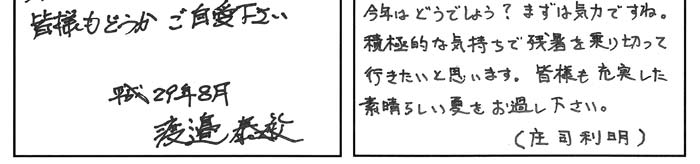 皆様もどうかご自愛下さい
平成29年8月
渡邉泰
今年はどうでしょう？まずは気力ですね。
積極的な気持ちで残暑を乗り切って
行きたいと思います。皆様も充実した
素晴らしい夏をお過し下さい。
（庄司利明）